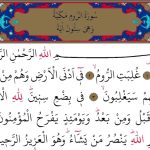 سُورَةُ الرُّومِ مَكِّيَّةٌ
وَهِيَ سِتُّونَ آيَةً
اللهِ الرَّحْمٰنِ
غُلِبَتِ الرُّومُ ۙ فِي أَدْنَى الْأَرْضِ وَهُمْ مِنْ
سَيَغْلِبُونَ ۙ فِي بِضْعِ سِنِينَ ۗ لِلّٰهِ
وَمِنْ بَعْدُ وَيَوْمَئِذٍ يَفْرَحُ الْمُؤْمِنُونَ
اللهِ يَنْصُرُ مَنْ يَشَاءُ وَهُوَ الْعَزِيزُ